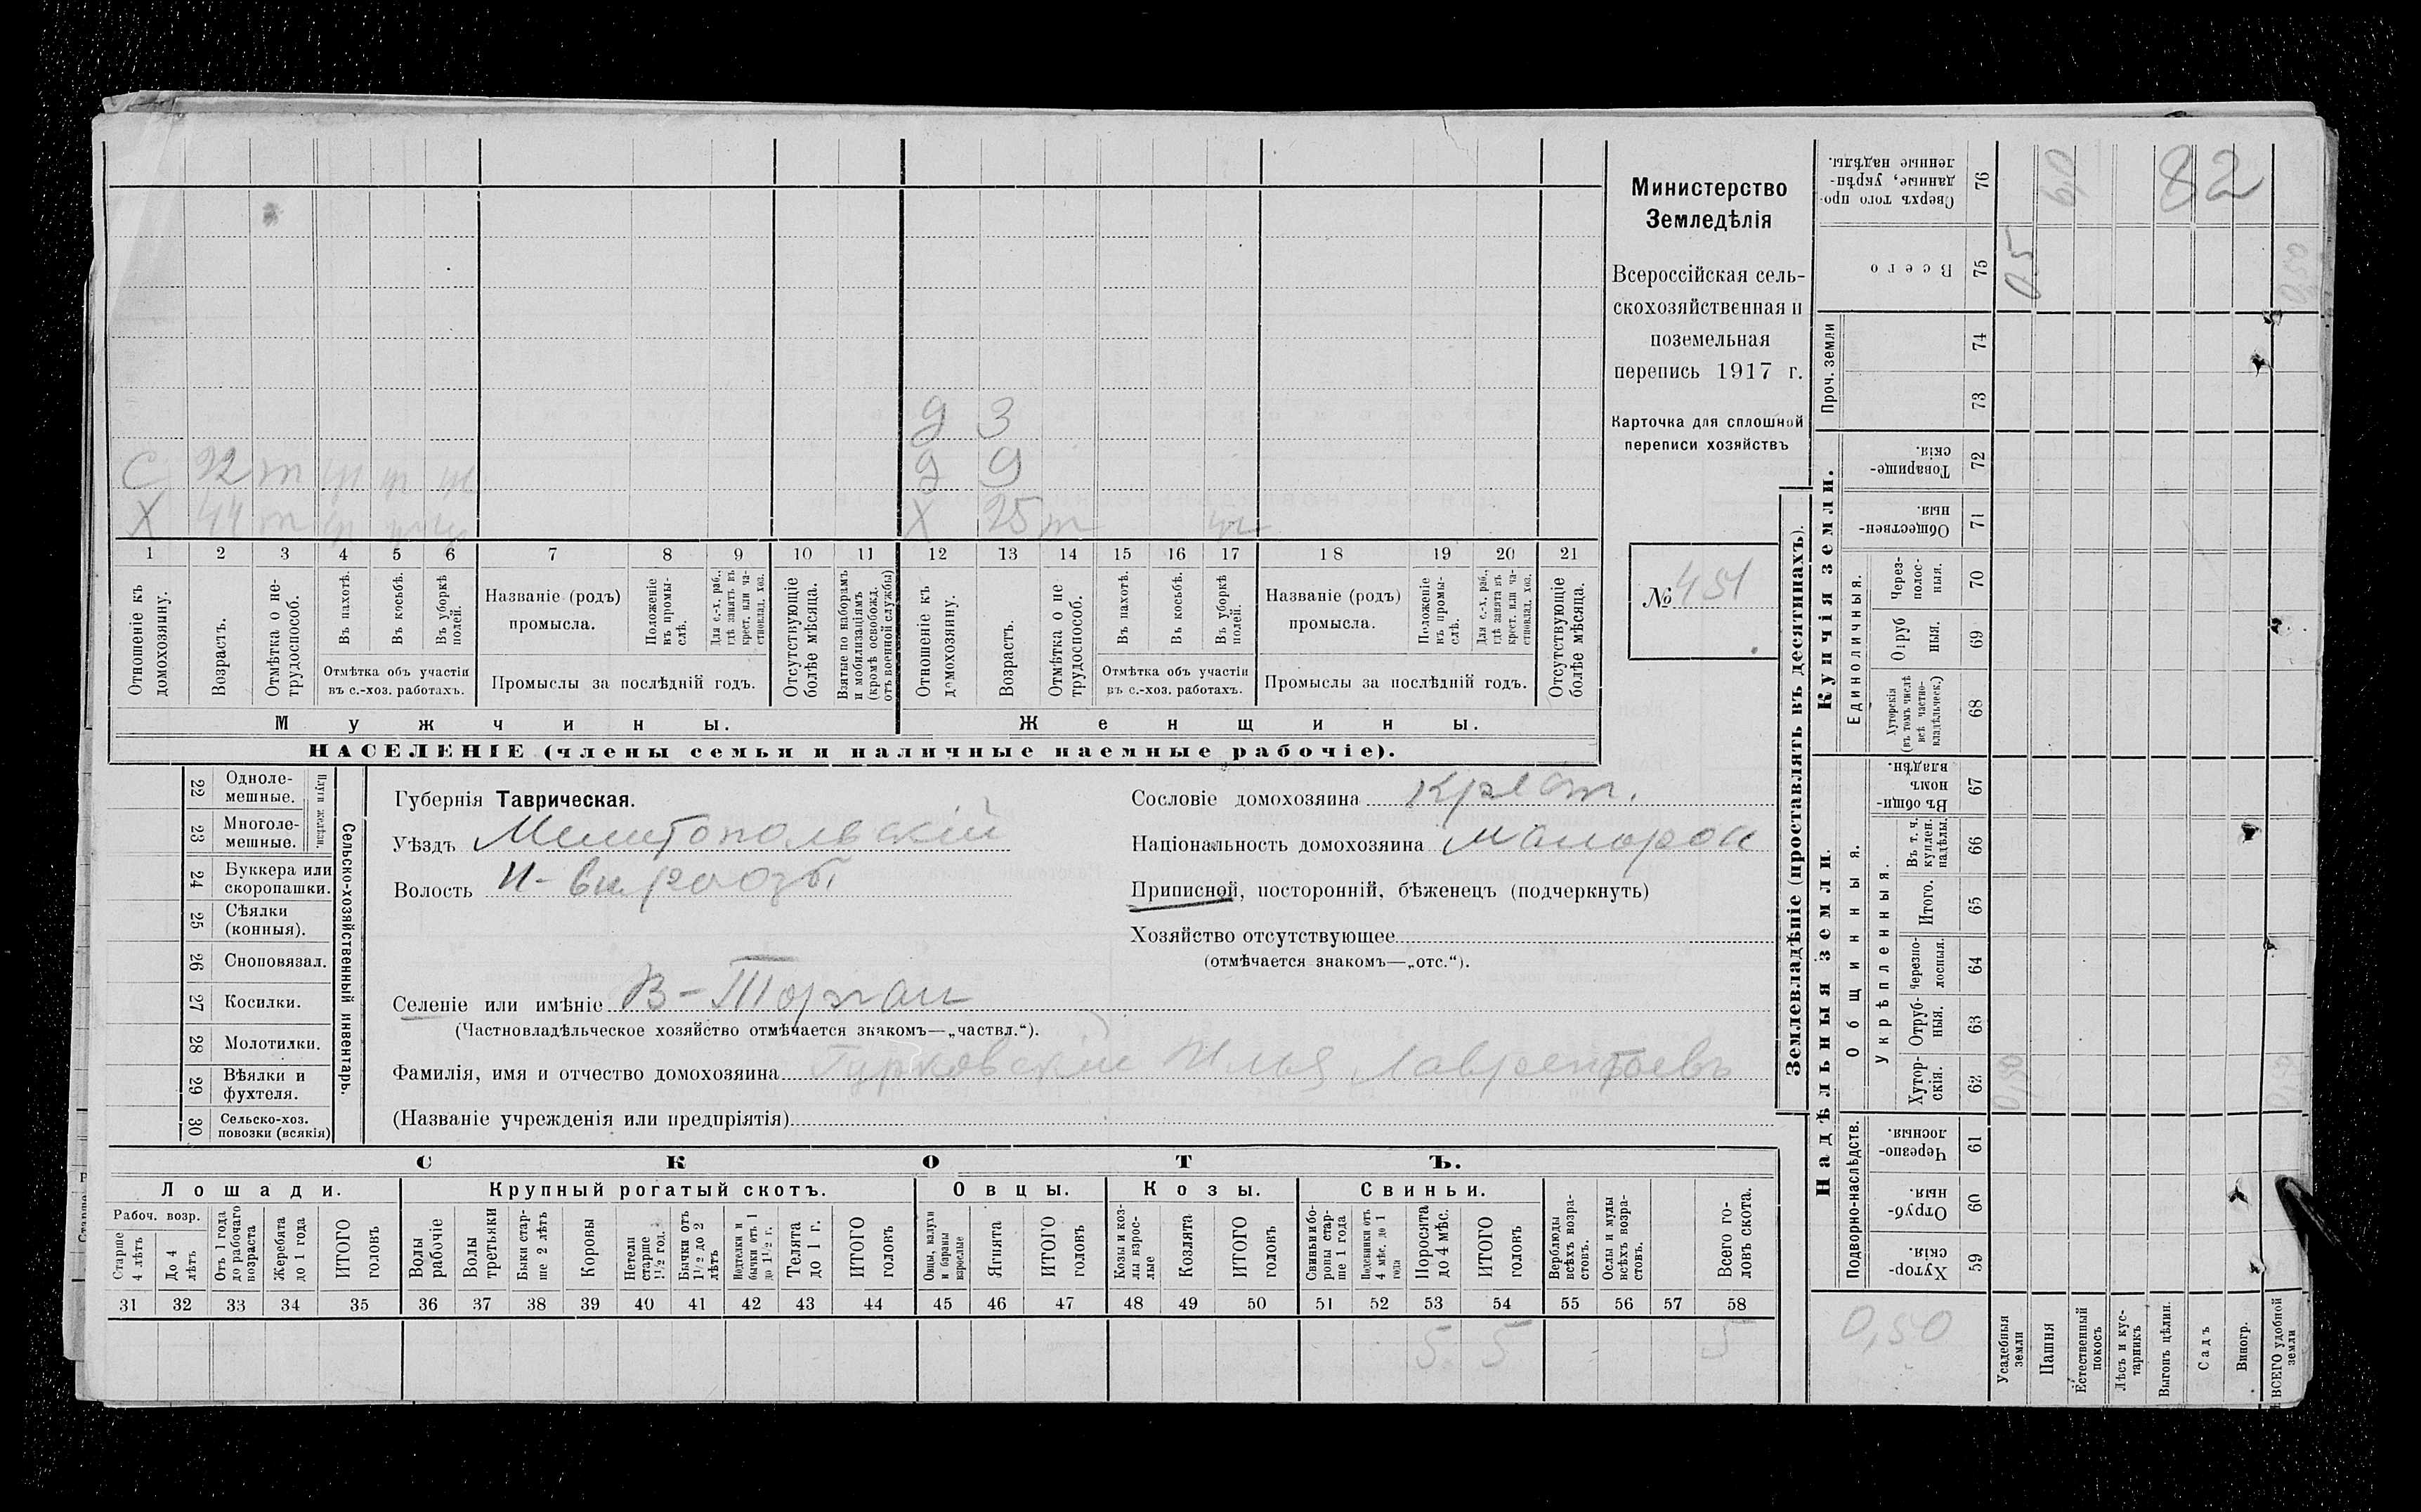 д 3
С 22 т
д 9
Х 44 т
Х 25 т
1 2 3 4 5 6 7 8 9 10 11 12 13 14 15 16 17 18 19 20 21
Отношеніе къ домохозяину.
Возрастъ.
Отмѣтка о не-
трудоспособ.
Въ пахотѣ.
Въ косьбѣ.
Въ уборкѣ
полей.
Отмѣтка объ участіи
въ с.-хоз. работахъ.
Названіе (родъ)
промысла.
Положеніе
въ промы-
слѣ.
Для с.-х. раб.,
гдѣ занятъ въ
крест. или ча-
стновлад. хоз.
Промыслы за послѣдній годъ.
Отсутствующіе
болѣе мѣсяца.
Взятые по наборамъ
и мобилизаціямъ
(кромѣ освобожд.
отъ военной службы)
Отношеніе къ
домохозяину.
Возрастъ.
Отмѣтка о не
трудоспособ.
Въ пахотѣ.
Въ косьбѣ.
Въ уборкѣ
полей.
Отмѣтка объ участіи
въ с.-хоз. работахъ.
Названіе (родъ)
промысла.
Положеніе
въ промы-
слѣ.
Для с.-х. раб.,
гдѣ занята въ
крест. или ча-
стновлад. хоз.
Промыслы за послѣдній годъ.
Отсутствующіе
болѣе мѣсяца.
Мужчины.
Женщины.
НАСЕЛЕНІЕ (члены семьи и наличные наемные рабочіе).
Министерство
Земледѣлія
Всероссійская сель-
скохозяйственная и
поземельная
перепись 1917 г.
Карточка для сплошной
переписи хозяйствъ
№ 451
22 Одноле-
мешные.
23 Многоле-
мешные.
Плуги желѣзн.
24 Буккера или
скоропашки.
25 Сѣялки
(конныя).
26 Сноповязал.
27 Косилки.
28 Молотилки.
29 Вѣялки и
фухтеля.
30 Сельско-хоз.
повозки (всякія)
Сельско-хозяйственный инвентарь.
Губернія Таврическая.
Уѣздъ Мелитопольскій
Волость
Селеніе или имѣніе В-Торгаи
(Частновладѣльческое хозяйство отмѣчается знакомъ—„частвл.“).
Фамилія, имя и отчество домохозяина Гурковскій Илья Лаврентьевъ
(Названіе учрежденія или предпріятія)
Сословіе домохозяина крест.
Національность домохозяина малорос
Приписной, посторонній, бѣженецъ (подчеркнуть)
Хозяйство отсутствующее
(отмѣчается знакомъ—„отс.“).
СКОТЪ.
Лошади.
Крупный рогатый скотъ.
Овцы.
Козы.
Свиньи.
Рабоч. возр.
Старше
4 лѣтъ
До 4
лѣтъ
Отъ 1 года
до рабочаго
возраста
Жеребята
до 1 года
ИТОГО
головъ
Волы
рабочіе
Волы
третьяки
Быки стар-
ше 2 лѣтъ
Коровы
Нетели
старше
1½ год.
Бычки отъ
1½ до 2
лѣтъ
Подтелки и
бычки отъ 1
до 1½ г.
Телята
до 1 г.
ИТОГО
головъ
Овцы, валухи
и бараны
взрослые
Ягнята
ИТОГО
головъ
Козы и коз-
лы взрос-
лые
Козлята
ИТОГО
головъ
Свиньи и бо-
ровы стар-
ше 1 года
Подсвинки отъ
4 мѣс. до 1
года
Поросята
до 4 мѣс.
ИТОГО
головъ
Верблюды
всѣхъ возра-
стовъ.
Ослы и мулы
всѣхъ возра-
стовъ.
Всего го-
ловъ скота.
31 32 33 34 35 36 37 38 39 40 41 42 43 44 45 46 47 48 49 50 51 52 53 54 55 56 57 58
5 5 5
Землевладѣніе (проставлять въ десятинахъ).
Надѣльныя земли.
Купчія земли.
Проч. земли
Подворно-наслѣдств.
Общинныя.
Укрѣпленныя.
Единоличныя.
Сверхъ того про-
данные, укрѣп-
ленные надѣлы.
76
Всего
75
74
73
Товарище-
скія.
72
Обществен-
ныя.
71
Через-
полос-
ныя.
70
Отруб
ныя.
69
Хуторскія
(въ томъ числѣ
всѣ частно-
владѣльческ.)
68
Въ общи-
номъ
владѣн.
67
Въ т. ч.
куплен.
надѣлы.
66
Итого.
65
Черезпо-
лосныя.
64
Отруб-
ныя.
63
Хутор-
скія.
62
Черезпо-
лосныя.
61
Отруб-
ныя.
60
Хутор-
скія.
59
82
0,5
0,50
0,50
0,50
Усадебныя
земли
Пашня
Естественный
покосъ
Лѣсъ и кус-
тарникъ
Выгонъ цѣлин.
Садъ
Виногр.
ВСЕГО удобной
земли